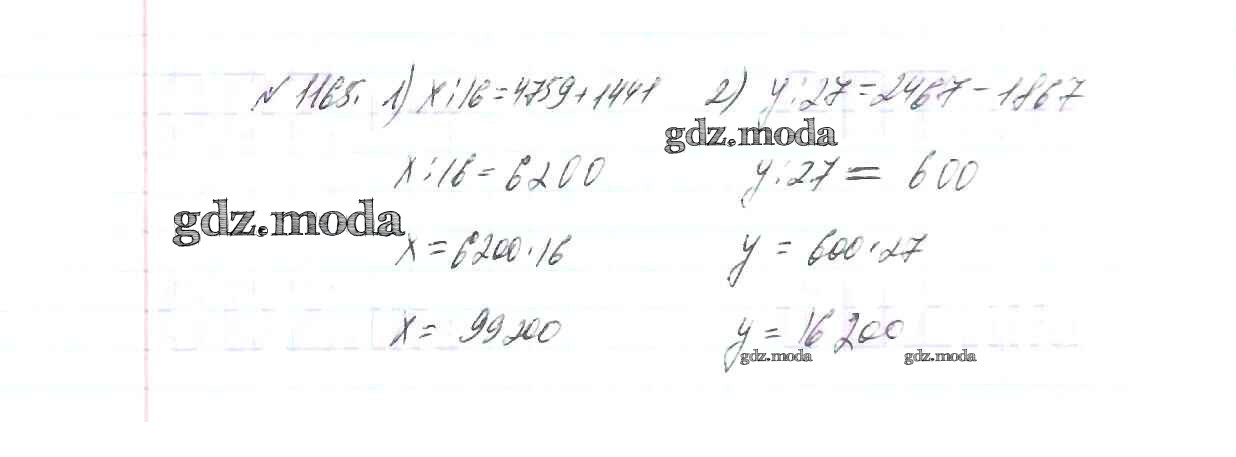 № 1165. 1) x:16=4759+1441 2) y:27=2467-1867
gdz.moda
x:16=6200 y:27=600
gdz.moda
x=6200·16 y=600·27
x=99200 y=16200
gdz.moda gdz.moda